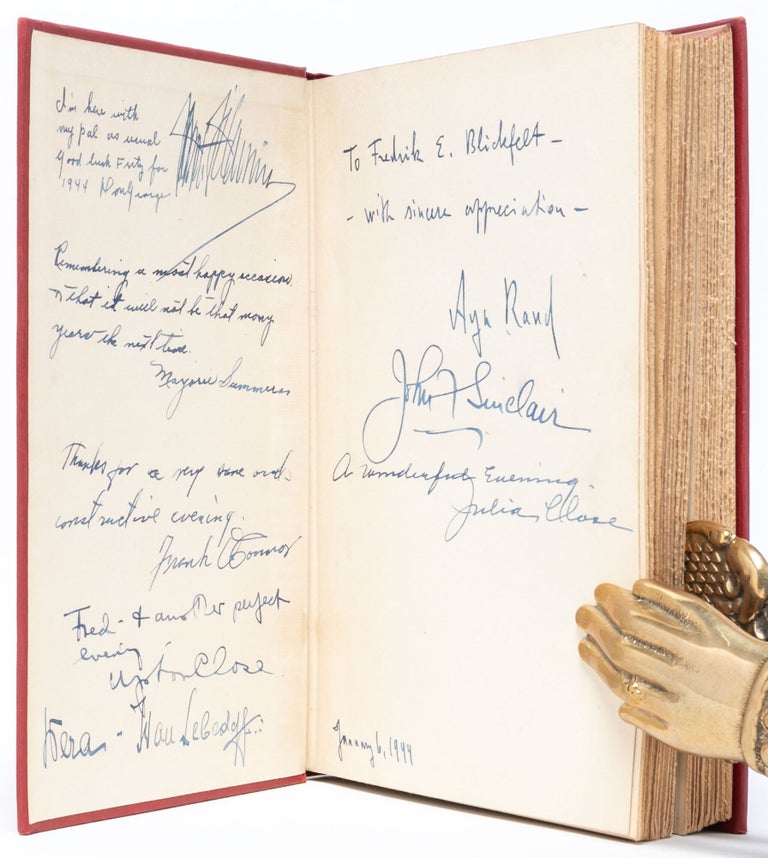 I'm here with
my pal as usual
Good luck Fritz for
1944 Don George
Remembering a most happy occasion
& that it will not be that many
years the next time.
Marjorie Summers
Thanks for a very rare and
constructive evening.
Frank O'Connor
Fred - & another perfect
evening
Upton Close
Vera - Ivan Lebedeff
To Fredrik E. Blickfelt -
- with sincere appreciation -
Ayn Rand
John F Sinclair
A wonderful Evening.
Julia Close
January 6, 1944